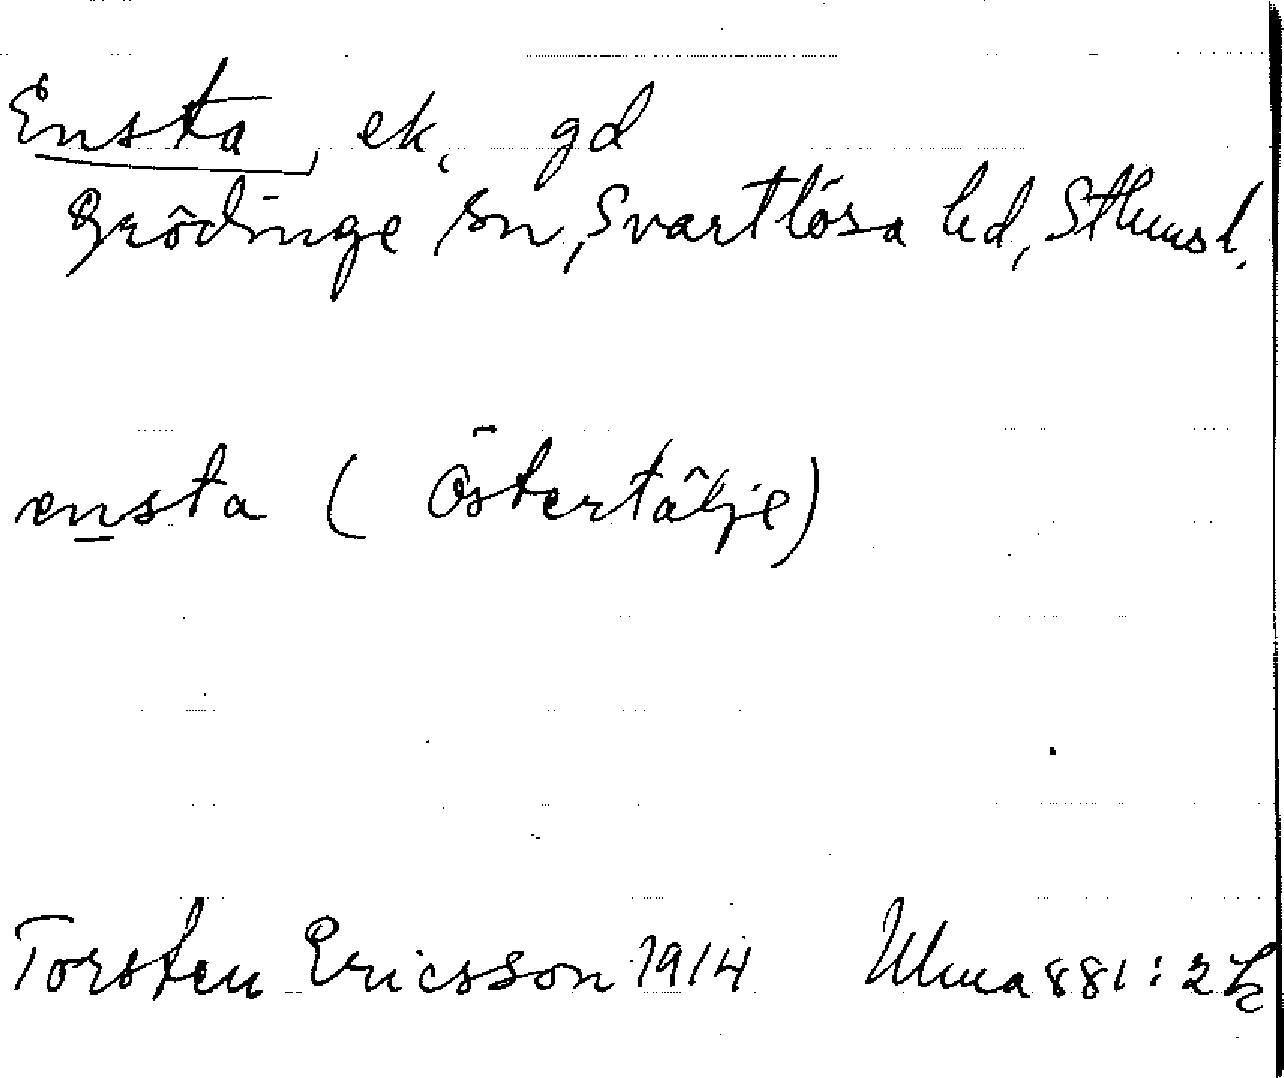 Ensta, ek, gd
Grödinge sn, Svartlösa hd, Sthmsl.
ensta (Östertälje)
Torsten Ericsson 1914 Ulma 881:2